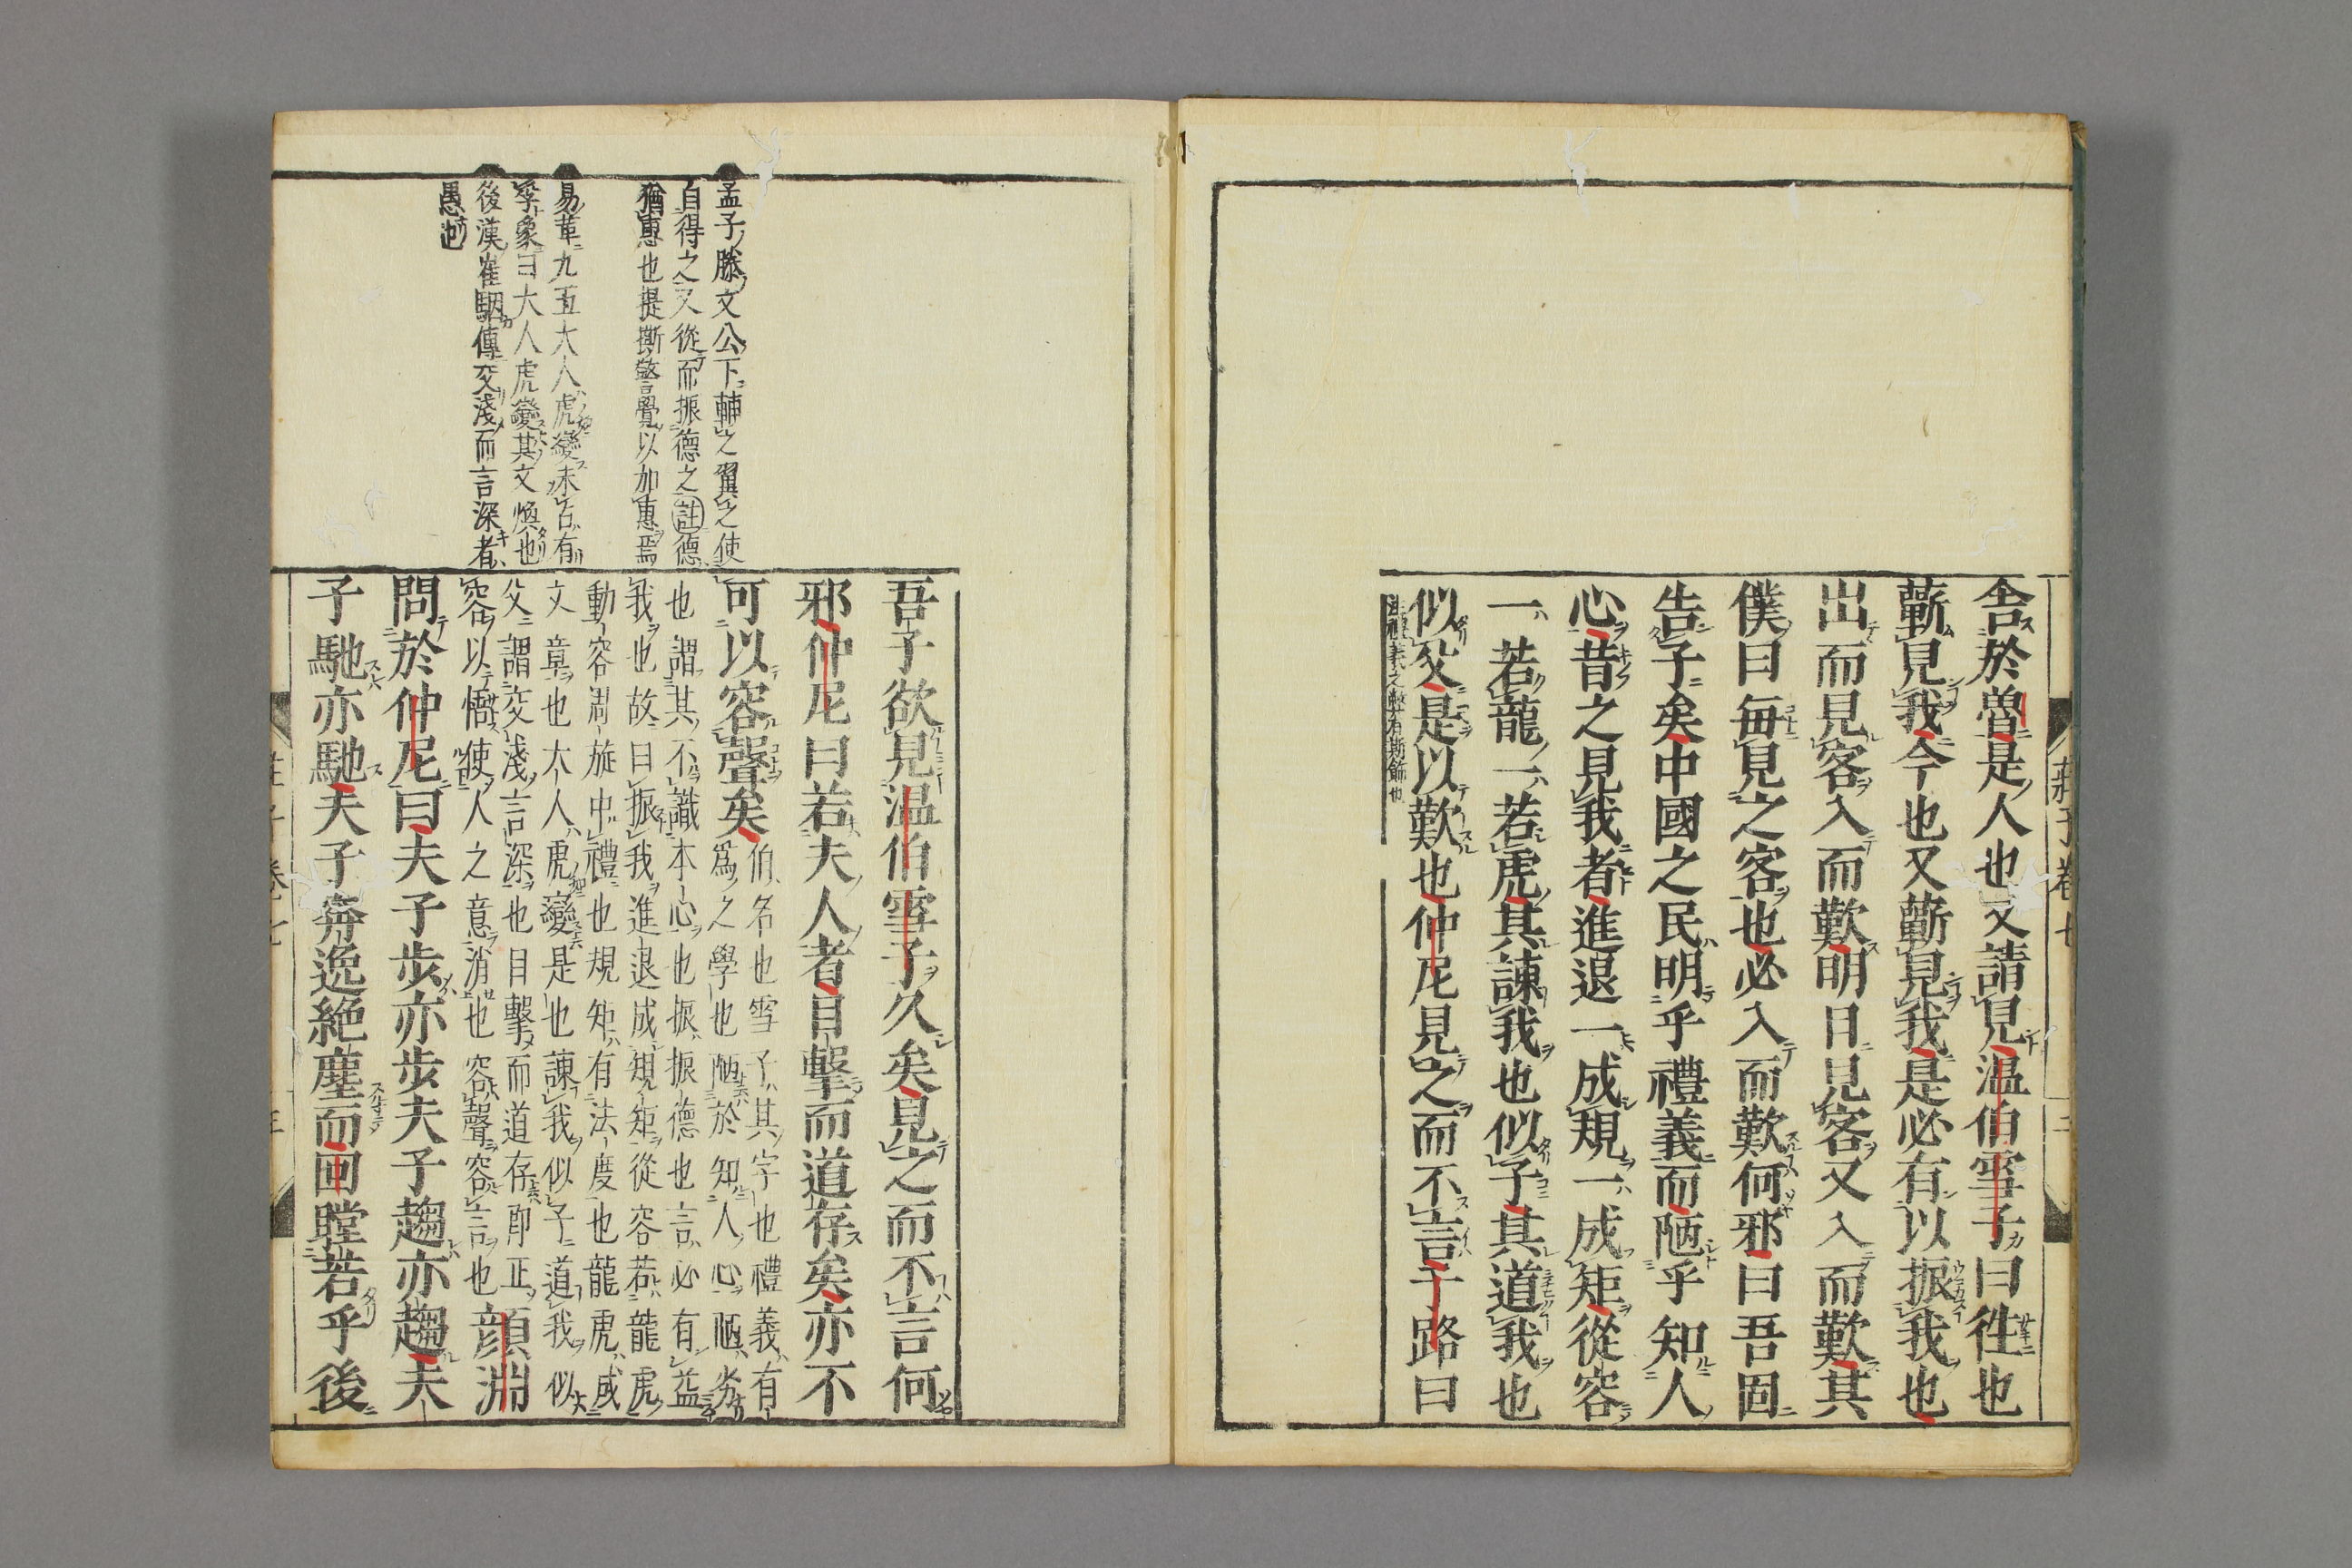 莊子卷七
舎於魯是人也又請見温伯雪子曰徃也
蘄見我今也又蘄見我是必有以振我也
出而見客入而歎明日見客又入而歎其
僕曰毎見之客也必入而歎何邪曰吾固
告子矣中國之民明乎禮義而陋乎知人
心昔之見我者進退一成䂓一成矩從容
一若龍一若虎其諫我也似子其道我也
似父是以歎也仲尼見之而不言子路曰
禮義之弊有斯飾也
孟子滕文公下輔之翼之使
自得之又從而振德之註德
猶惠也提撕警覺以加惠焉
易革九五大人虎變未占有
孚象曰大人虎變其文煥也
後漢崔駰傳交淺而言深者
愚也
吾子欲見温伯雪子久矣見之而不言何
邪仲尼曰若夫人者目擊而道存矣亦不
可以容聲矣
伯名也雪子其字也禮義有
爲之學也陋於知人心陋劣
也謂其不識本心也振振德也言必有益
我也故曰振我進退成䂓矩從容若龍虎
動容周旋中禮也規矩有法度也龍虎成
文章也大人虎變是也諫我似子道我似
父謂交淺言深也目擊而道存即正
容以悟使人之意消也容聲容言也
顔淵
問於仲尼曰夫子歩亦歩夫子趨亦趨夫
子馳亦馳夫子奔逸絶塵而囬瞠若乎後